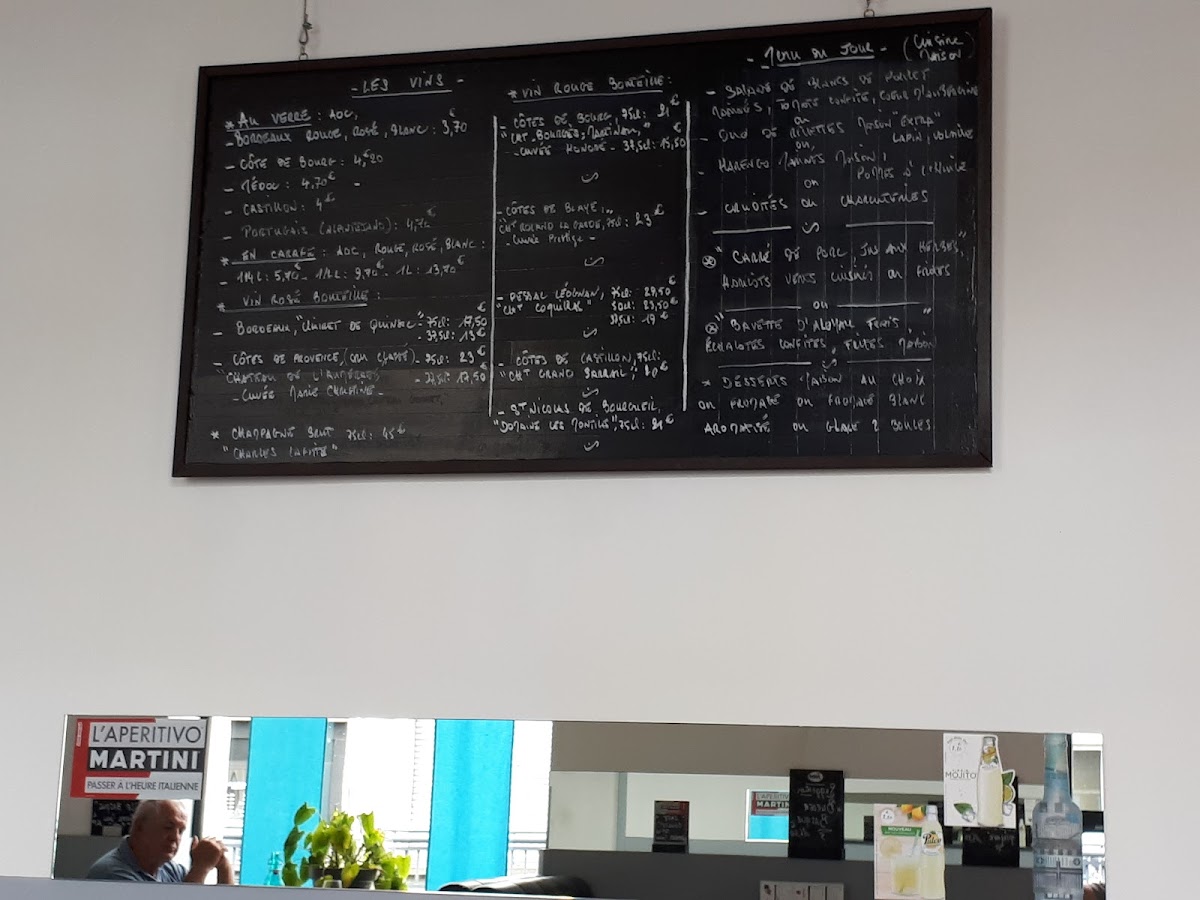 - LES VINS -
* AU VERRE : AOC,
- BORDEAUX ROUGE, ROSÉ, BLANC : 3,70 €
- CÔTE DE BOURG : 4,20 €
- MÉDOC : 4,70 € -
- CASTILLON : 4 €
- PORTUGAIS 4,70 €
* EN CARAFE : AOC, ROUGE, ROSÉ, BLANC :
- 1/4L : 5,70 € - 1/2L : 9,70 € - 1L : 13,70 €
* VIN ROSÉ BOUTEILLE :
- BORDEAUX, "CLAIRET DE QUINSAC" - 75cl : 17,50 €
- 37,5cl : 13 €
- CÔTES DE PROVENCE, (CRU CLASSÉ) - 75cl : 23 €
CHATEAU DE - 37,5cl : 17,50 €
- CUVÉE MARIE CHRISTINE -
* CHAMPAGNE BRUT 75cl : 45 €
"CHARLES LAFITE"
* VIN ROUGE BOUTEILLE :
- CÔTES DE BOURG, 75cl : 21 €
"CHT BOURGES, MARTINAU,"
- CUVÉE HONORÉ - 37,5cl : 15,50 €
- CÔTES DE BLAYE,
"CHT ROLAND LA GARDE, 75cl : 23 €
- Cuvée Prestige -
- PESSAC LÉOGNAN, 75cl : 29,50 €
"CHT COQUILLAS" 50cl : 23,50 €
37,5cl : 19 €
- CÔTES DE CASTILLON, 75cl :
"CHT GRAND BARRAIL", 20 €
- ST NICOLAS DE BOURGUEIL,
"DOMAINE LES MONTILS", 75cl : 21 €
- Menu du Jour - (Cuisine Maison)
- SALADE DE BLANCS DE POULET
MARINÉS, TOMATE CONFITE, CŒUR D'AUBERGINE
ou
- DUO DE RILLETTES MAISON "EXTRA"
ou LAPIN, VOLAILLE
- MARENGO MAISON,
ou POMMES À L'HUILE
- CRUDITÉS ou CHARCUTERIES
* "CARRÉ DE PORC, JUS AUX HERBES",
HARICOTS VERTS CUISINÉS ou FRITES
ou
* "BAVETTE D'ALOYAU FRITES,"
ÉCHALOTES CONFITES, FRITES MAISON
* DESSERTS MAISON AU CHOIX
ou FROMAGE ou FROMAGE BLANC
AROMATISÉ ou GLACE 2 BOULES
L'APERITIVO
MARTINI
PASSER À L'HEURE ITALIENNE
MOJITO
NOUVEAU
Pulco